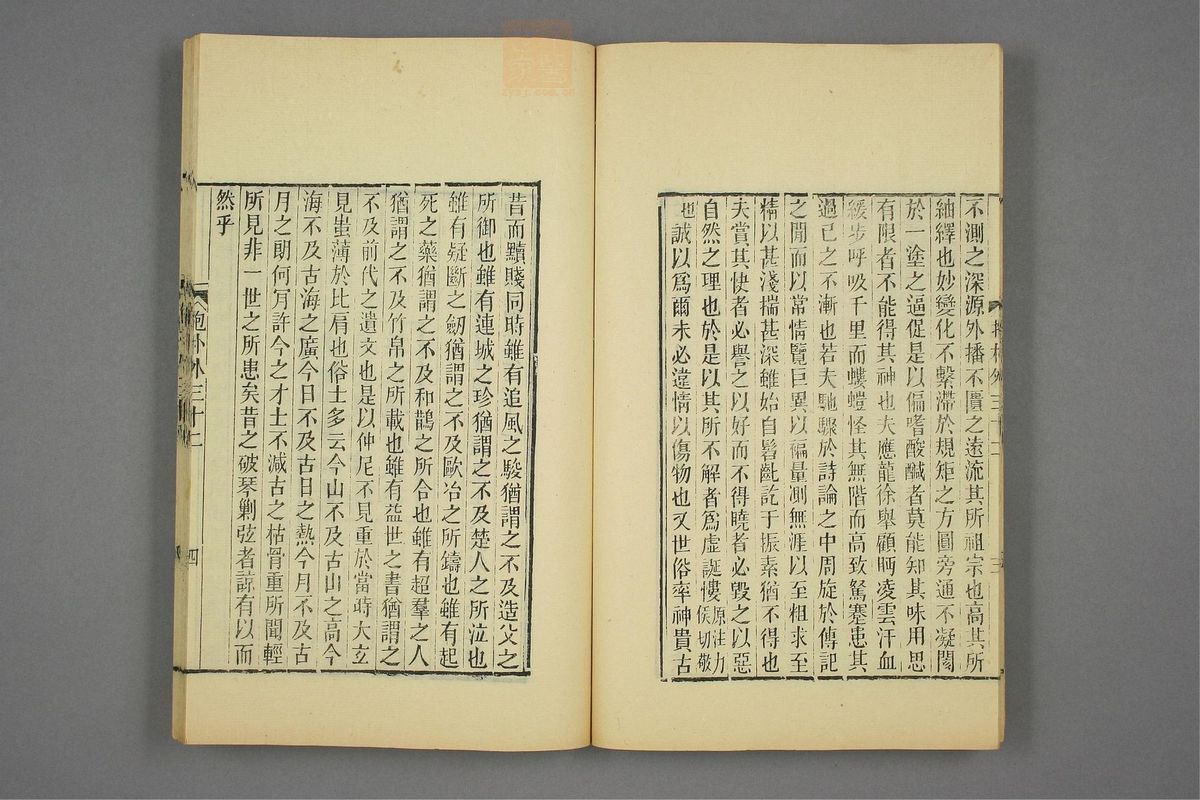 不測之深源外播不匱之遠流其所祖宗也高其所
紬繹也妙變化不繫滯於規矩之方圓旁通不凝閡
於一塗之逼促是以偏嗜酸鹹者莫能知其味用思
有限者不能得其神也夫應龍徐舉顧眄凌雲汗血
緩步呼吸千里而螻螘怪其無階而高致駑蹇患其
過己之不漸也若夫馳驟於詩論之中周旋於傳記
之閒而以常情覽巨異以褊量測無涯以至粗求至
精以甚淺揣甚深雖始自髫齔訖于振素猶不得也
夫賞其快者必譽之以好而不得曉者必毀之以惡
自然之理也於是以其所不解者爲虛誕慺原注力侯切敬
也誠以爲爾未必違情以傷物也又世俗率神貴古
昔而黷賤同時雖有追風之駿猶謂之不及造父之
所御也雖有連城之珍猶謂之不及楚人之所泣也
雖有疑斷之劒猶謂之不及歐冶之所鑄也雖有起
死之藥猶謂之不及和鵲之所合也雖有超羣之人
猶謂之不及竹帛之所載也雖有益世之書猶謂之
不及前代之遺文也是以仲尼不見重於當時大玄
見蚩薄於比肩也俗士多云今山不及古山之高今
海不及古海之廣今日不及古日之熱今月不及古
月之朗何肎許今之才士不減古之枯骨重所聞輕
所見非一世之所患矣昔之破琴剿弦者諒有以而
然乎
抱朴外三十二
四